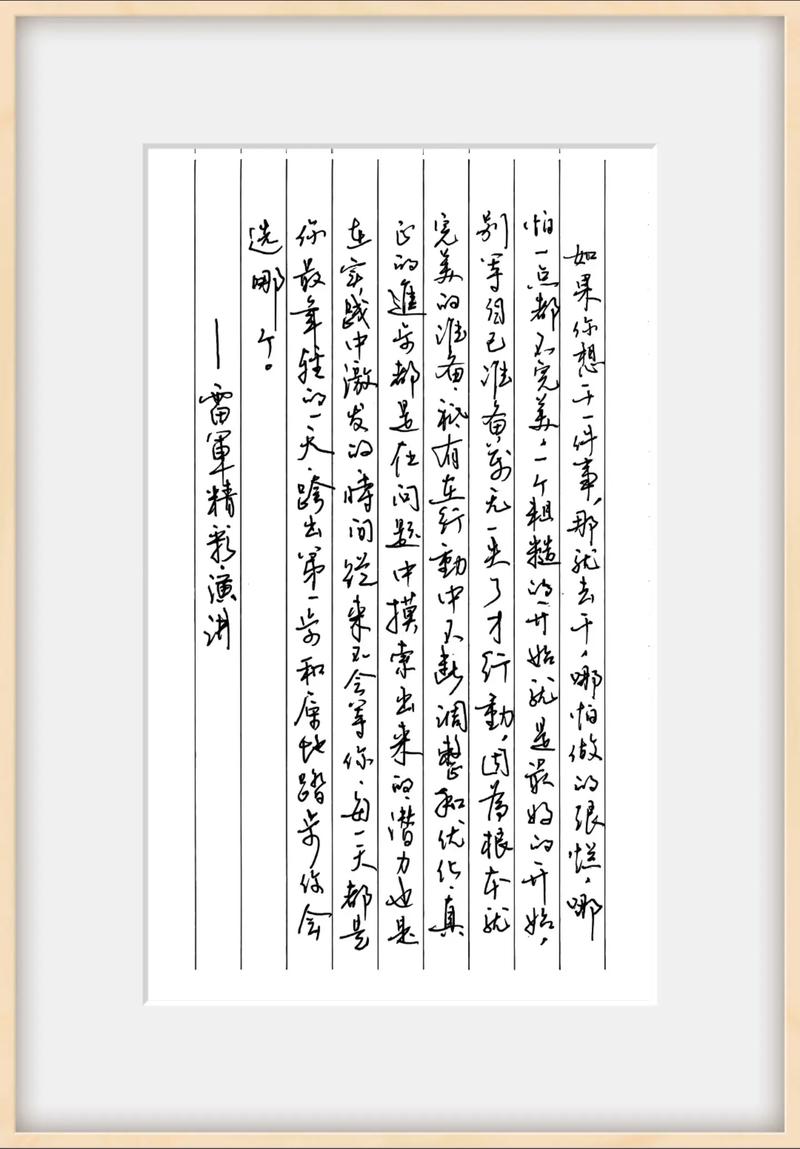 如果你想干一件事,那就去干,哪怕做的很烂,哪
怕一点都不完美,一个粗糙的开始就是最好的开始,
别等自己准备万无一失了才行動,因為根本就
完美的准备,祗有在行動中不断调整和优化,真
正的進步都是在问题中摸索出来的潜力也是
在实践中激发的時间從来不会等你,每一天都是
你最年轻的一天,跨出第一步和原地踏步你会
选哪个。
—雷軍精彩演讲